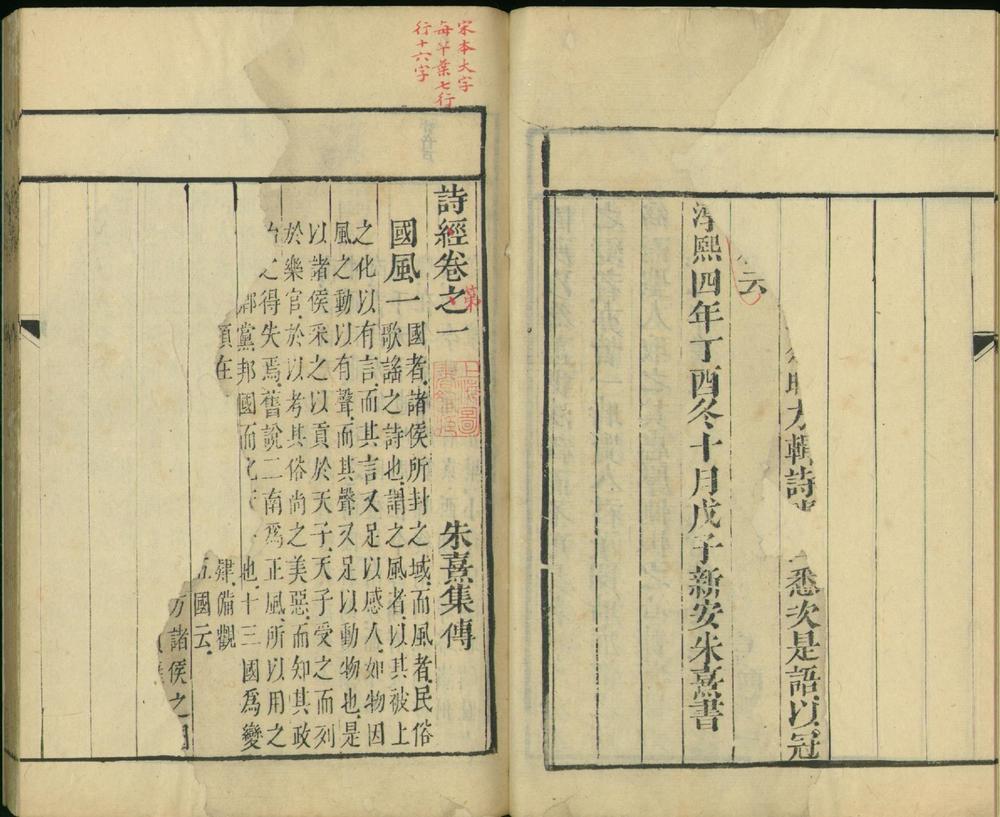 輯詩
悉次是語以冠
云
淳熙四年丁酉冬十月戊子新安朱熹書
宋本大字
每半葉七行
行十六字
詩經卷之一
第
朱熹集傳
國風一
國者諸侯所封之域而風者民俗
歌謠之詩也謂之風者以其被上
之化以有言而其言又足以感人如物因
風之動以有聲而其聲又足以動物也是
以諸侯采之以貢於天子天子受之而列
於樂官於以考其俗尚之美惡而知其政
之得失焉舊說二南爲正風所以用之
鄉黨邦國而化
也十三國爲變
肄備觀
國云
諸侯之國